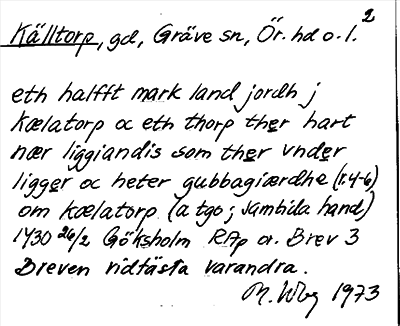 2
Källtorp, gd, Gräve sn, Ör. hd o. l.
eth halfft mark land jordh j
kælatorp oc eth thorp ther hart
nær liggiandis som ther vnder
ligger oc heter gubbagiærdhe (r. 4-6)
om kælatorp (a tgo j sambida hand)
1430 26/2 Göksholm RAp or. Brev 3
Breven vidfästa varandra.
1973